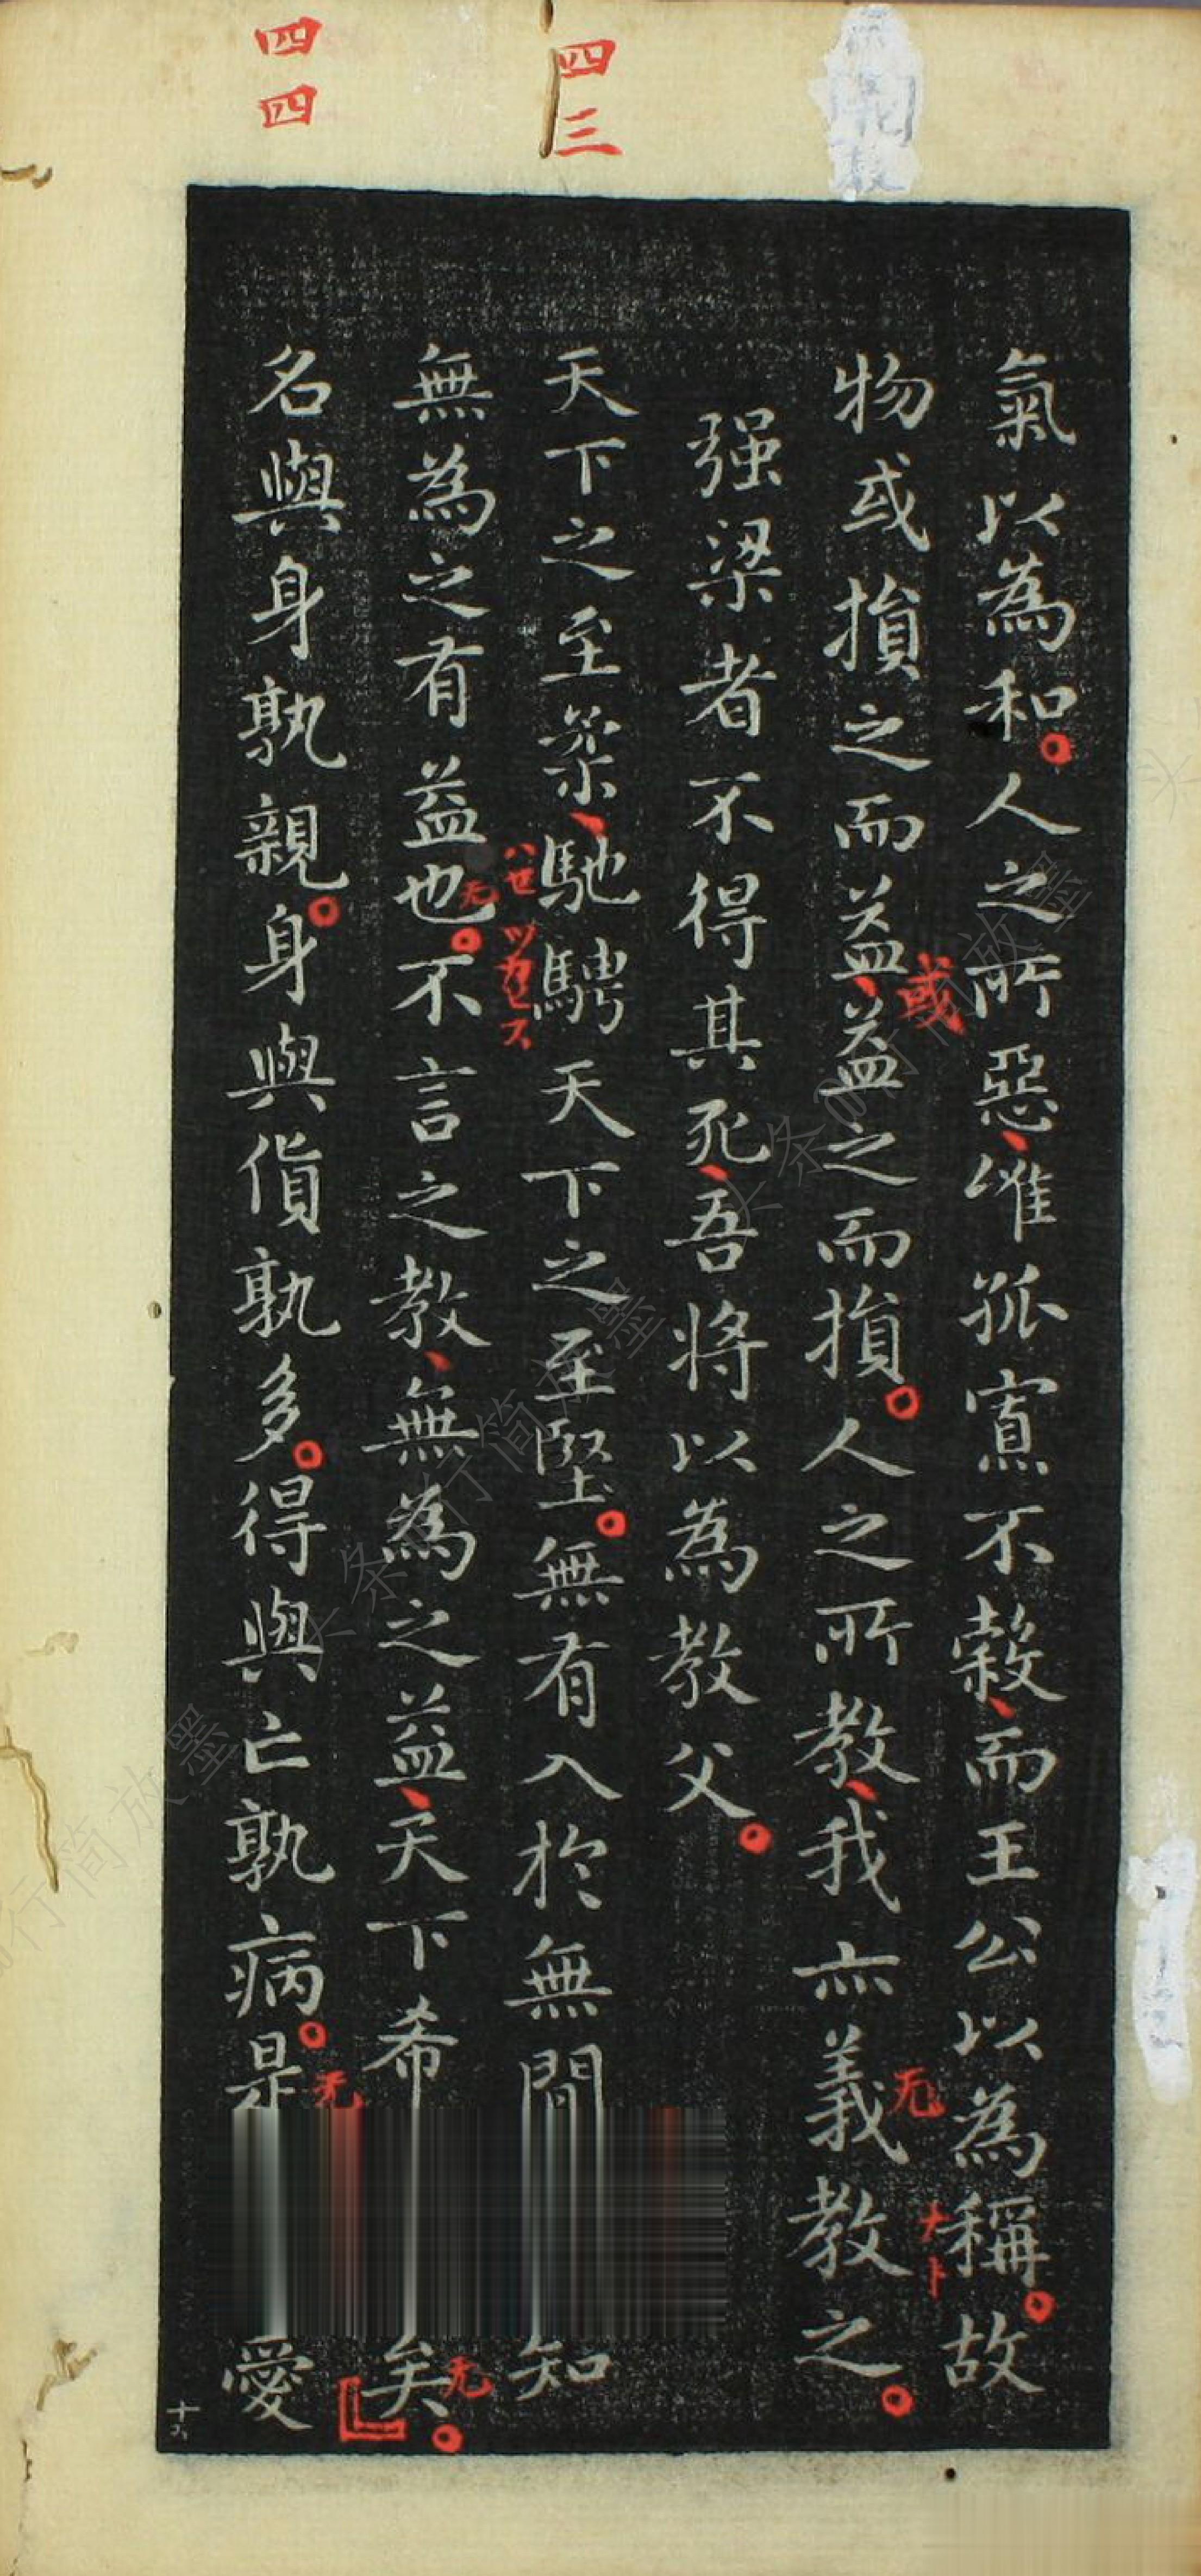 四三
四四
氣以為和人之所惡唯孤寡不穀而王公以為稱故
物或損之而益益之而損人之所教我亦義教之
或
无
强梁者不得其死吾將以為教父
天下之至柔馳騁天下之至堅無有入於無間
知
ハせ
ツカヒス
無為之有益也不言之教無為之益天下希
矣
无
无
名與身孰親身與貨孰多得與亡孰病是
愛
无
十六